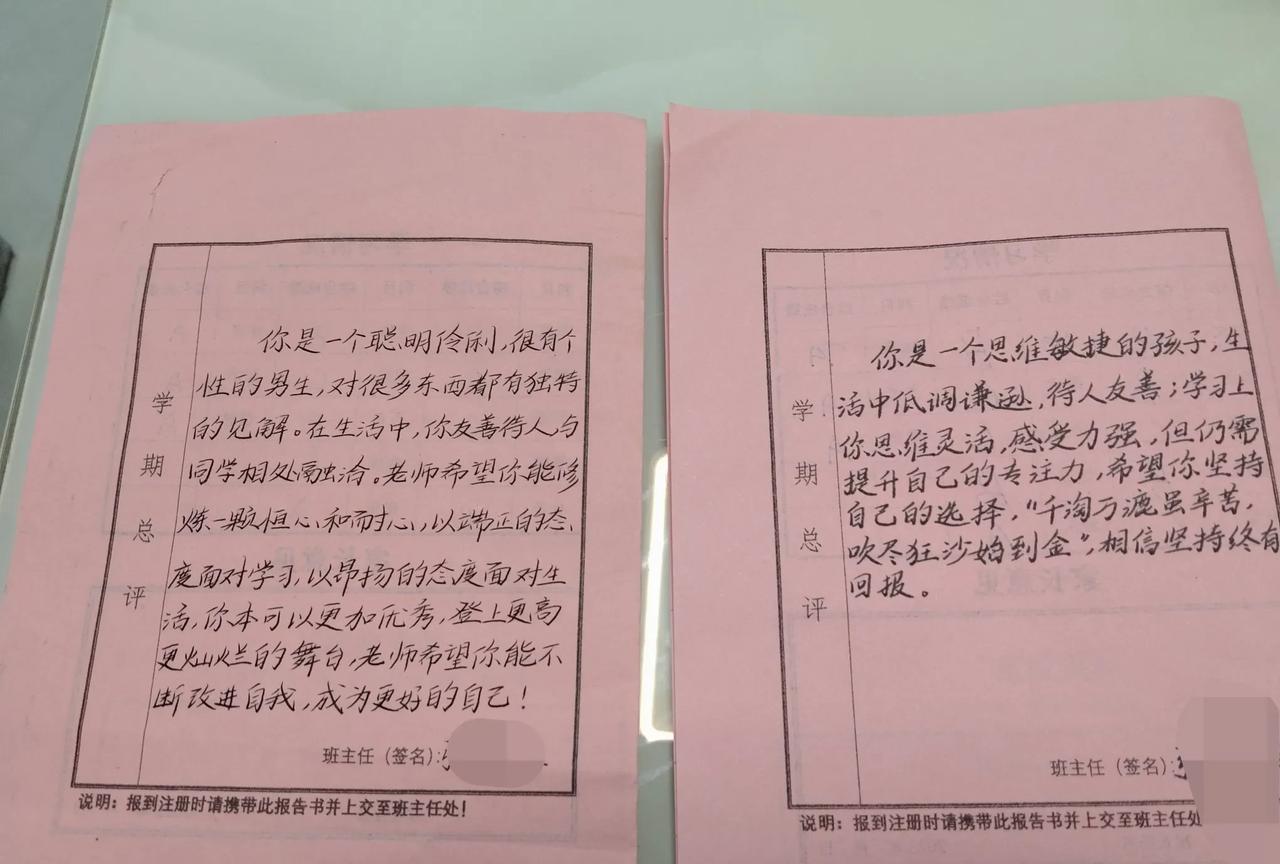 学期总评
你是一个聪明伶俐,很有个
性的男生,对很多东西都有独特
的见解。在生活中,你友善待人,与
同学相处融洽。老师希望你能修
炼一颗恒心和耐心,以端正的态
度面对学习,以昂扬的态度面对生
活,你本可以更加优秀,登上更高
更灿烂的舞台,老师希望你能不
断改进自我,成为更好的自己!
班主任(签名):
说明:报到注册时请携带此报告书并上交至班主任处!
学期总评
你是一个思维敏捷的孩子,生
活中低调谦逊,待人友善;学习上
你思维灵活,感受力强,但仍需
提升自己的专注力,希望你坚持
自己的选择,“千淘万漉虽辛苦,
吹尽狂沙始到金”,相信坚持终有
回报。
班主任(签名):
说明:报到注册时请携带此报告书并上交至班主任处